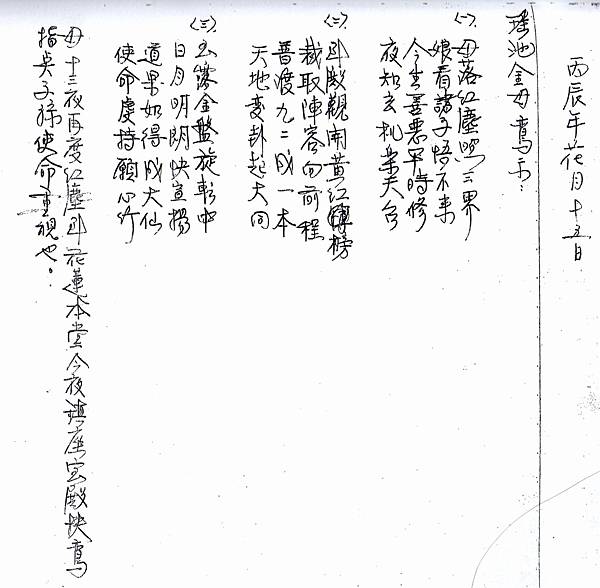 丙辰年花月十五日
瑤池金母鸞示：
(一)、母落紅塵照三界
娘看諸子悟不來
今生善惡早時修
夜知玄机朵天台
(二)、到殿觀開黃紅榜
裁取陣容向前程
普渡九二成一本
天地變卦起大同
(三)、玉鑼金盤旋転中
日月明朗快宣揚
道果如得成大仙
使命虔持願心行
母十三夜再度紅塵到花蓮本堂今夜鎮座宝殿快鸞
指点子孫使命重視也。